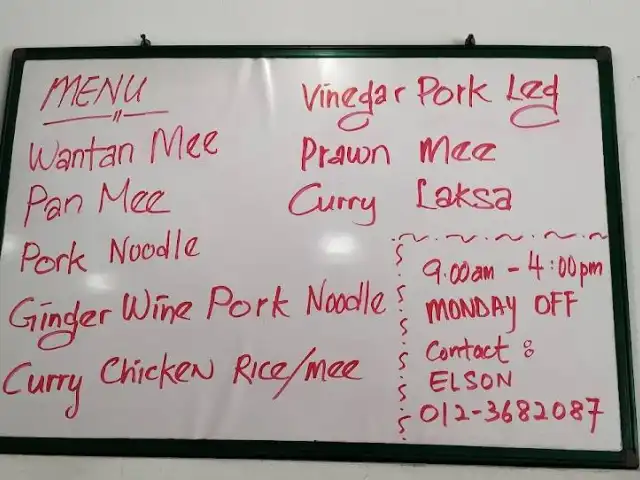 MENU
Wantan Mee
Pan Mee
Pork Noodle
Ginger Wine Pork Noodle
Curry Chicken Rice/mee
Vinegar Pork Leg
Prawn mee
Curry Laksa
9.00am - 4:00pm
MONDAY OFF
Contact :
ELSON
012-3682087